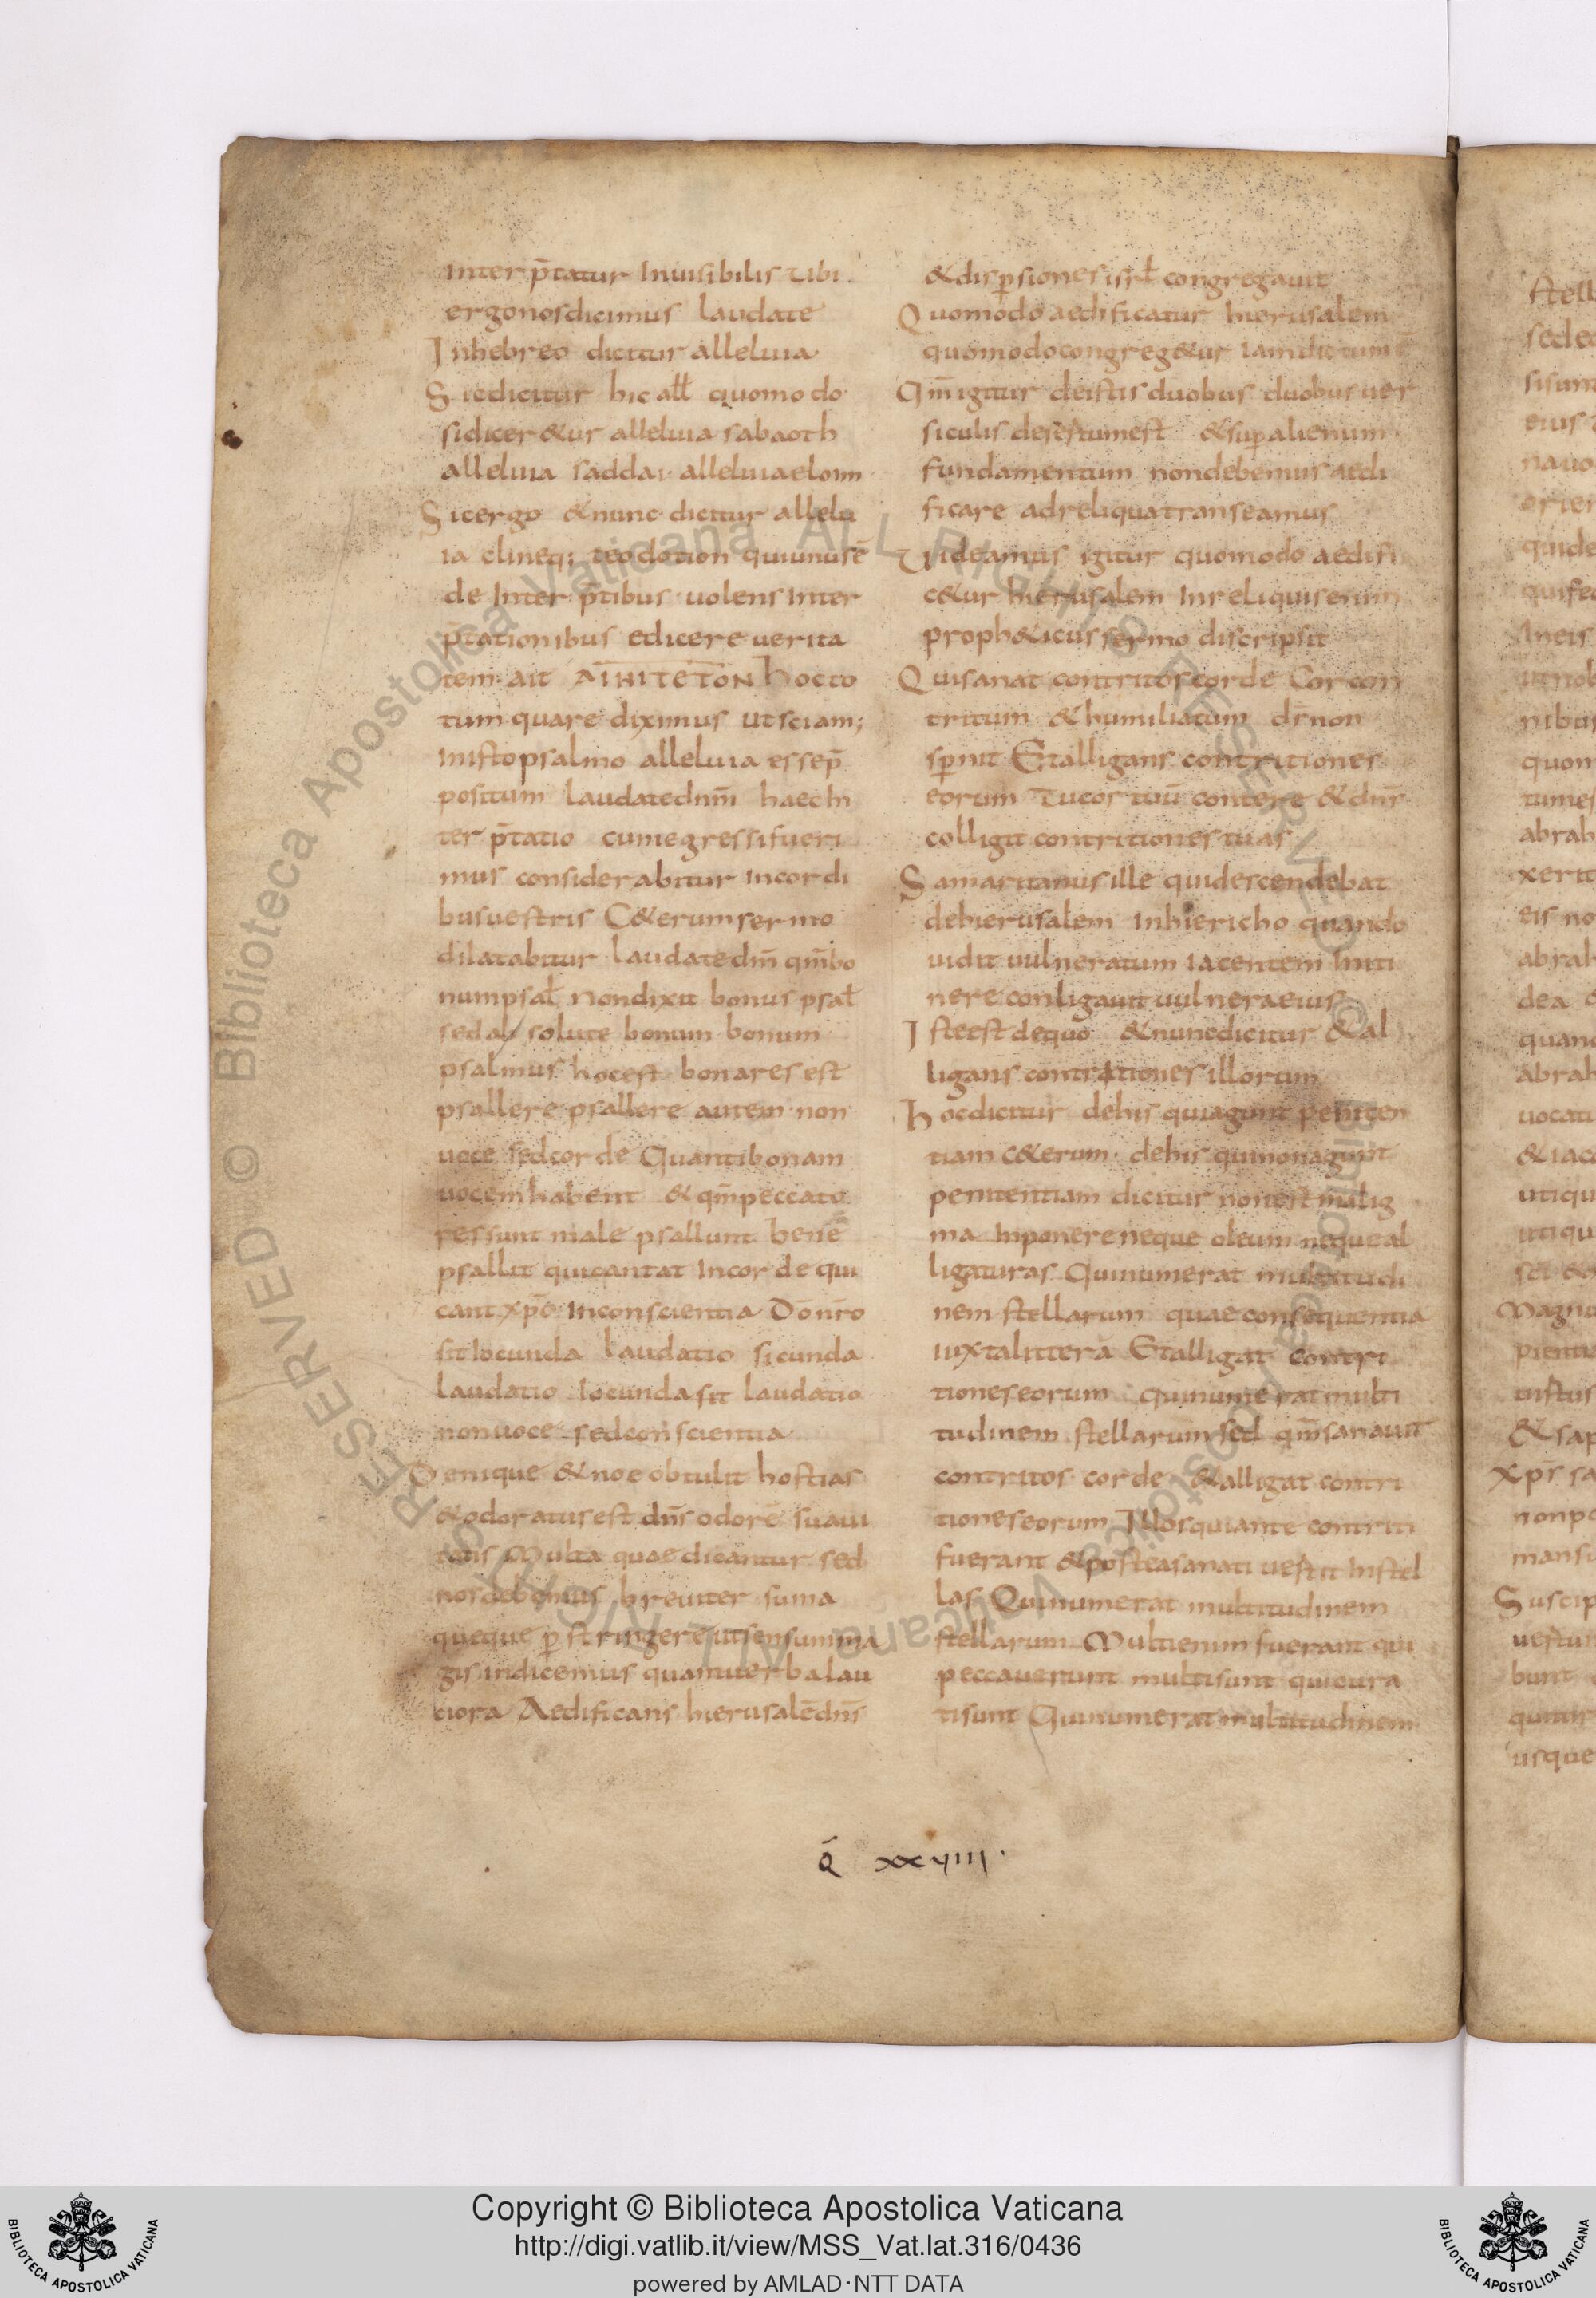 Inter p̄tatur Inuisibilis Tibi
ergonosdicimus laudate
Inhebreo dicitur alleluia
Sicdicitur hic aƚƚ quomodo
sidicer&ur alleluia sabaoth
alleluia saddai alleluiaeloim
Sicergo &nunc dicitur allelu
ia clineq; teodotion quiunusē
de Inter p̄tibus uolens Inter
p̄tationibus edicere uerita
tem ait AINITETON hocto
tum quare diximus utsciam;
inistopsalmo alleluia essep̄
positum laudatednm̄ haecIn
ter p̄tatio cumegressifueri
mus considerabitur incordi
busuestris C&erumsermo
dilatabitur laudatedm̄ qm̄bo
numpsaƚ Nondixit bonus psaƚ
sedab solute bonum bonum
psalmus hocest bonares est
psallere psallere autem non
uoce sedcorde Quantibonam
uocemhabent &qm̄peccato
res sunt male psallunt bene
psallit quicantat Incorde qui
cant xp̄o Inconscientia Dōnr̄o
sitIocunda laudatio sicunda
laudatio Iocundasit laudatio
nonuoce sedconscientia
Denique &noe obtulit hostias
&odoratusest dn̄s odorē suaui
tatis Multa quae dicantur sed
nosdebemus breuiter suma
queque p̄stringere utsensumma
gis indicemus quamuerbalau
tiora Aedificans hierusalēdn̄s
&disp̄siones isrƚ congregauit
Quomodo aedificatur hierusalem
quomodocongreg&ur iamdictum
Qm̄igitur deistis duobus duobus uer
siculis desertumest &sup̄alienum
fundamentum nondebemus aedi
ficare adreliquatranseamus
Uideamus igitur quomodo aedifi
c&ur hierusalem Inreliquisenim
proph&icus sermo discripsit
Quisanat contritos corde Cor con
tritum &humiliatum dr̄non
sp̄nit Etalligans contritiones
eorum Tucor tuū contere &dn̄s
colligit contritiones tuas
Samaritanusille quidescendebat
dehierusalem Inhiericho quando
uidit uulneratum iacentem Initi
nere conligauit uulneraeius
Isteest dequo &nuncdicitur &al
ligans contritiones illorum
Hocdicitur dehis quiagunt peniten
tiam C&erum dehis quinonagunt
penitentiam dicitur nonest malig
ma Inponere neque oleum neque al
ligaturas Quinumerat multitudi
nem stellarum quae consequentia
iuxtalitterā Etalligat contri
tioneseorum quinumerat multi
tudinem stellarum sed qm̄sanauit
contritos corde &alligat contri
tioneseorum Illosquiante contriti
fuerant &posteasanati uestit Instel
las Quinumerat multitudinem
stellarum Multienim fuerant qui
peccauerunt multisunt quicura
tisunt Quinumerat multitudinem
Q̄ XXVIIII
Copyright © Biblioteca Apostolica Vaticana
http://digi.vatlib.it/view/MSS_Vat.lat.316/0436
powered by AMLAD·NTT DATA